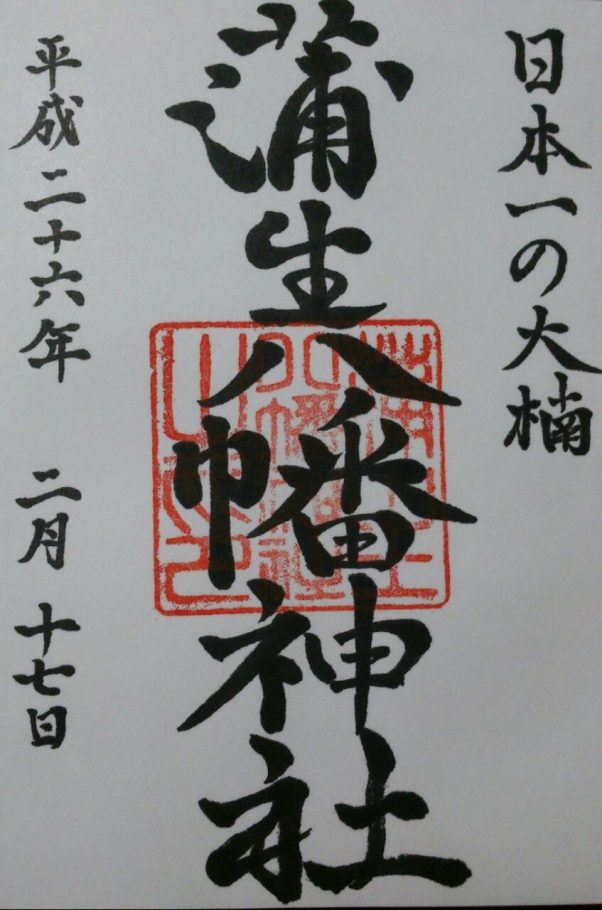 日本一の大楠
蒲生八幡神社
平成二十六年 二月 十七日